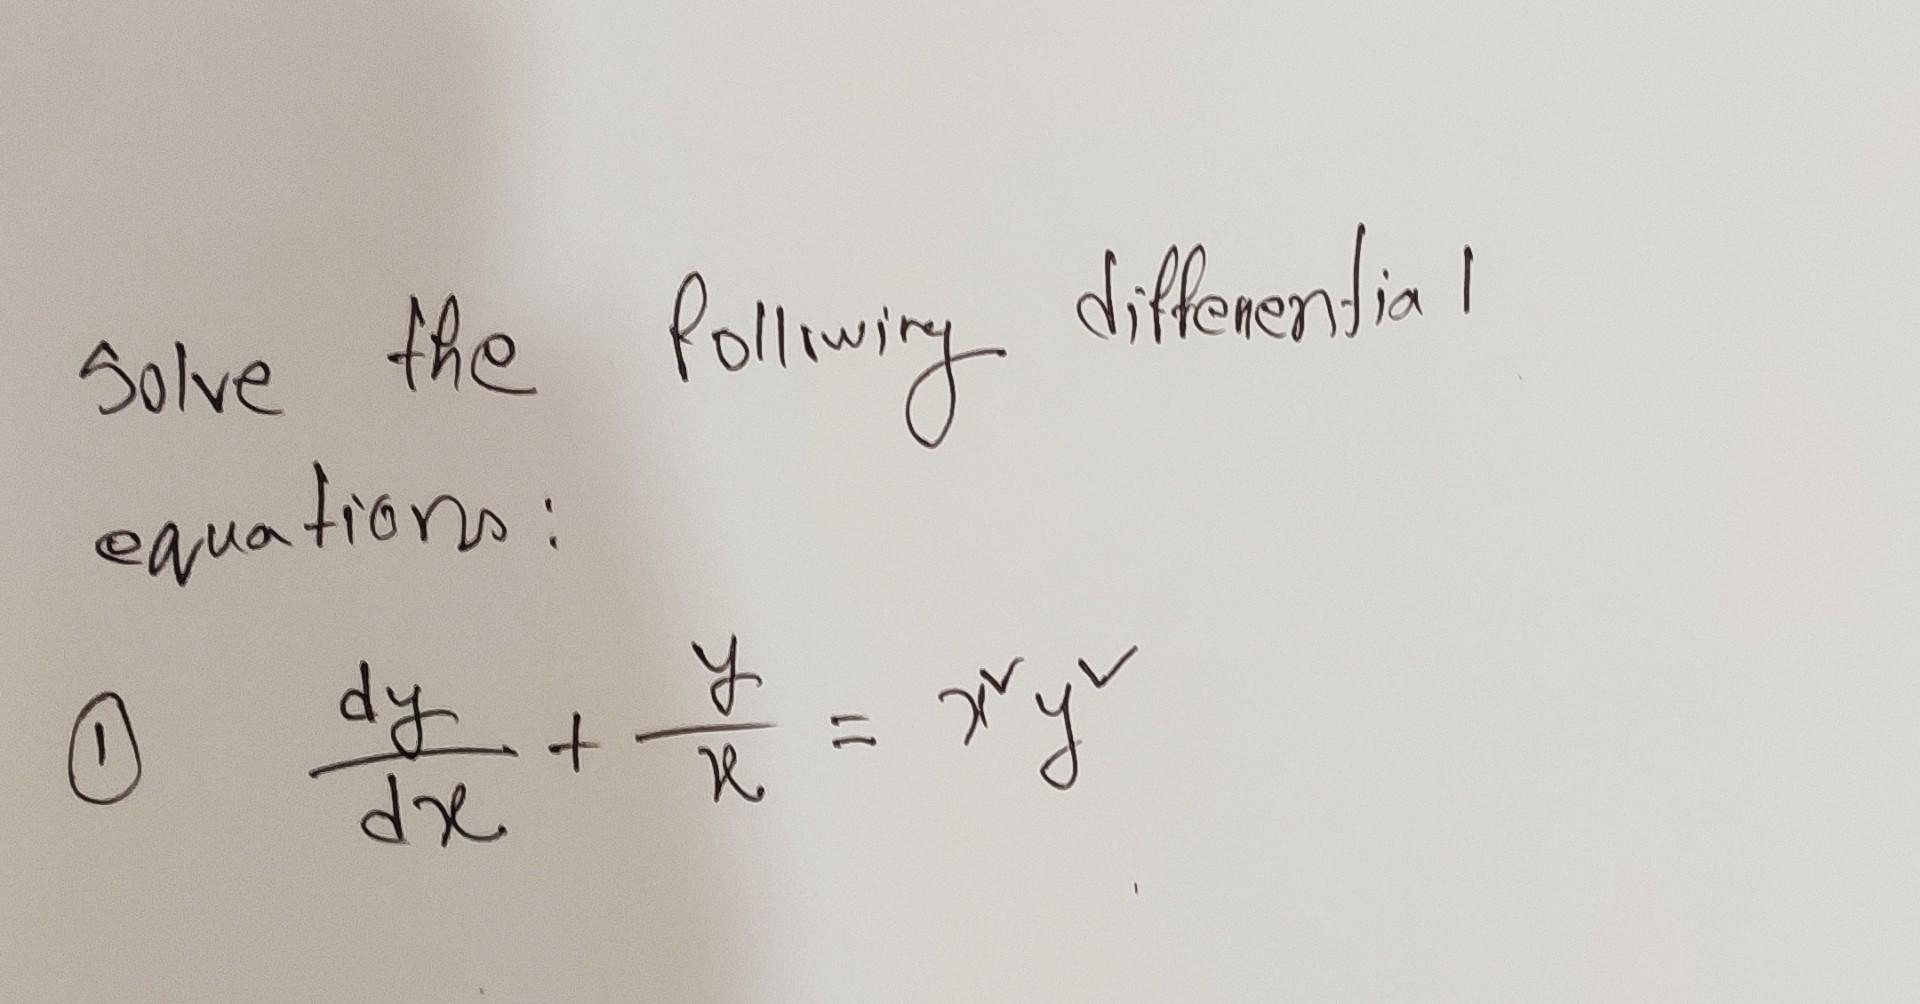 Solve the following differential
equations:
① dy/dx + y/x = x² y²